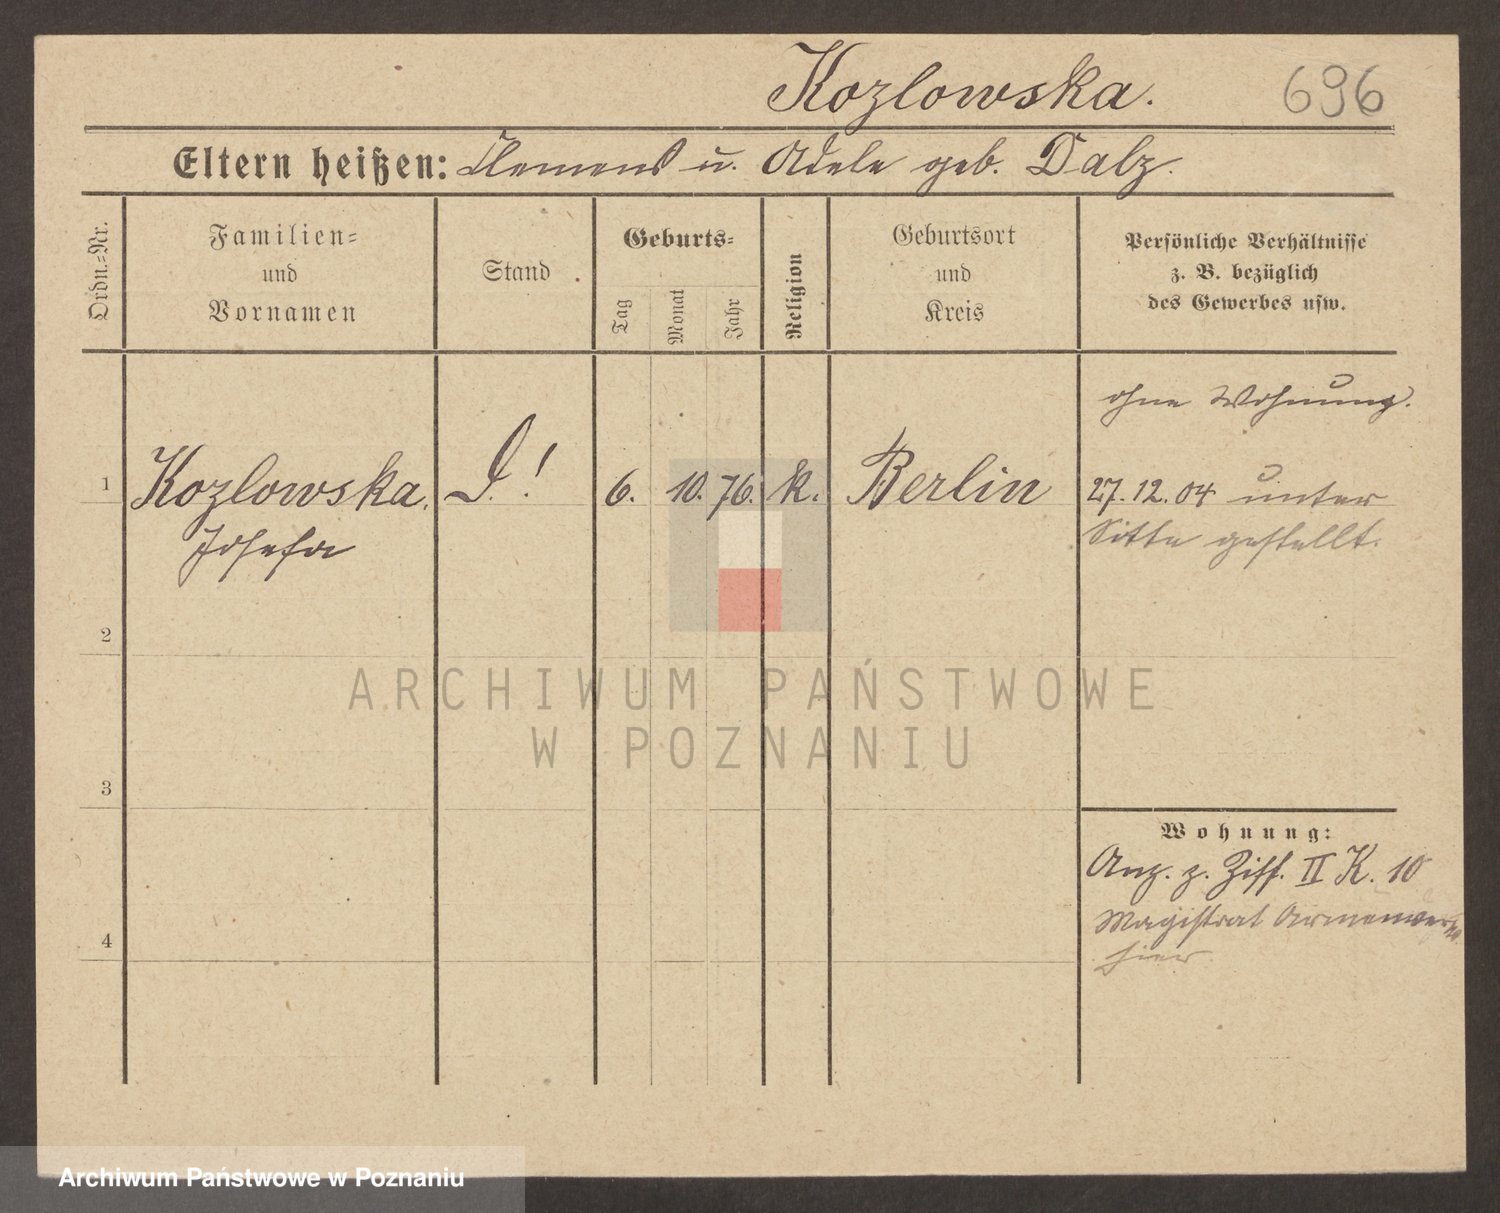 Kozlowska.
696
Eltern heißen: Clemens u. Adele geb. Dalz.
Ordn.-Nr.
Familien-
und
Vornamen
Stand
Geburts-
Tag
Monat
Jahr
Religion
Geburtsort
und
Kreis
Persönliche Verhältnisse
z. B. bezüglich
des Gewerbes usw.
ohne Wohnung.
1 Kozlowska, 6. 10. 76. k. Berlin 27. 12. 04 unter
Josefa
Sitte gestellt.
2
3
4
Wohnung:
Anz. z. Ziff. II K. 10
Magistrat
hier
ARCHIWUM PAŃSTWOWE
W POZNANIU
Archiwum Państwowe w Poznaniu